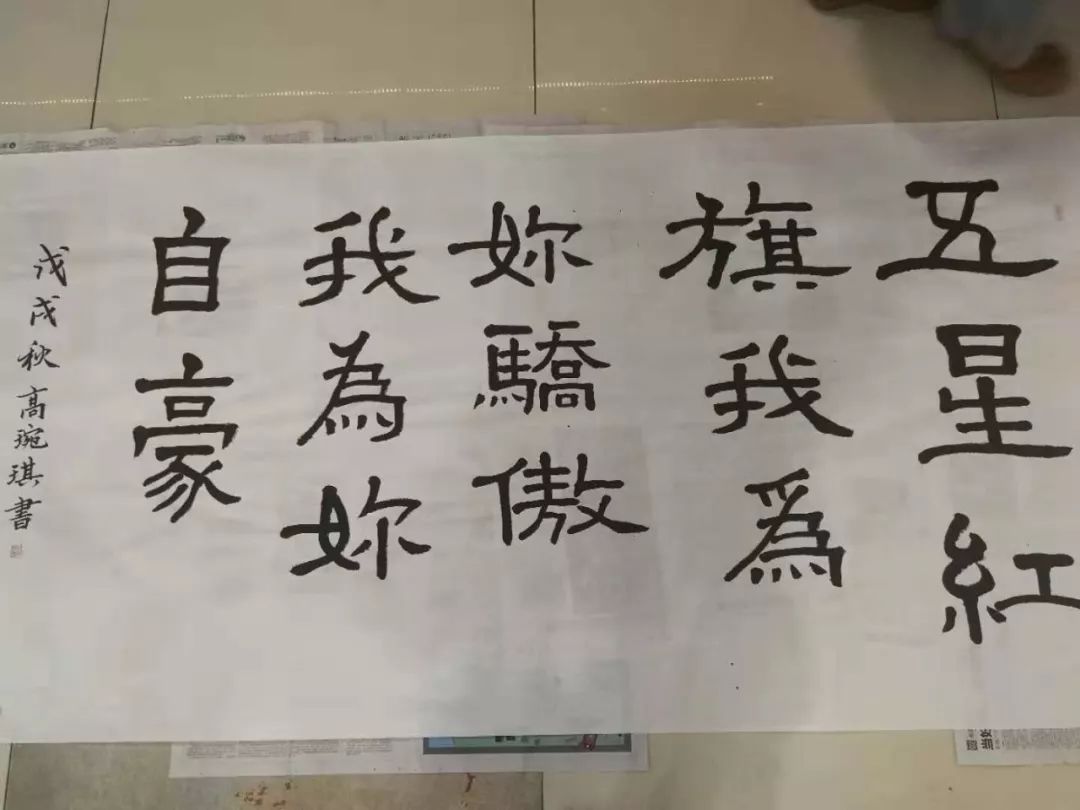 五星紅
旗我爲
妳驕傲
我為妳
自豪
戊戌秋高琬琪書